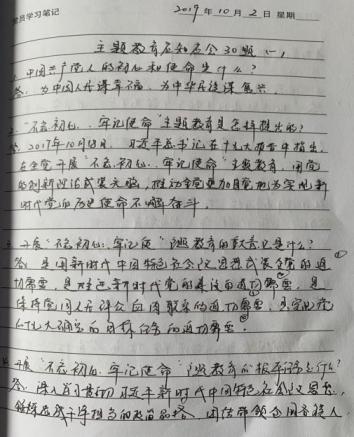 党员学习笔记 2019年10月2日 星期
主题教育应知应会30题(一)
1. 中国共产党人的初心和使命是什么?
答: 为中国人民谋幸福, 为中华民族谋复兴.
2. "不忘初心、牢记使命"主题教育是怎样提出的?
答: 2017年10月18日, 习近平总书记在十九大报告中指出,
在全党开展"不忘初心、牢记使命"主题教育, 用党
的创新理论武装头脑, 推动全党更加自觉地为实现新
时代党的历史使命不懈奋斗.
3. 开展"不忘初心、牢记使命"主题教育的重大意义是什么?
答: 是用新时代中国特色社会主义思想武装全党的迫
切需要①, 是推进新时代党的建设的迫切需要②, 是
保持党同人民群众血肉联系的迫切需要③, 是实现党
的十九大确定的目标任务的迫切需要④
4. 开展"不忘初心、牢记使命"主题教育的根本任务是什么?
答: 深入学习贯彻习近平新时代中国特色社会主义思想,
锤炼忠诚干净担当的政治品格, 团结带领全国各族人